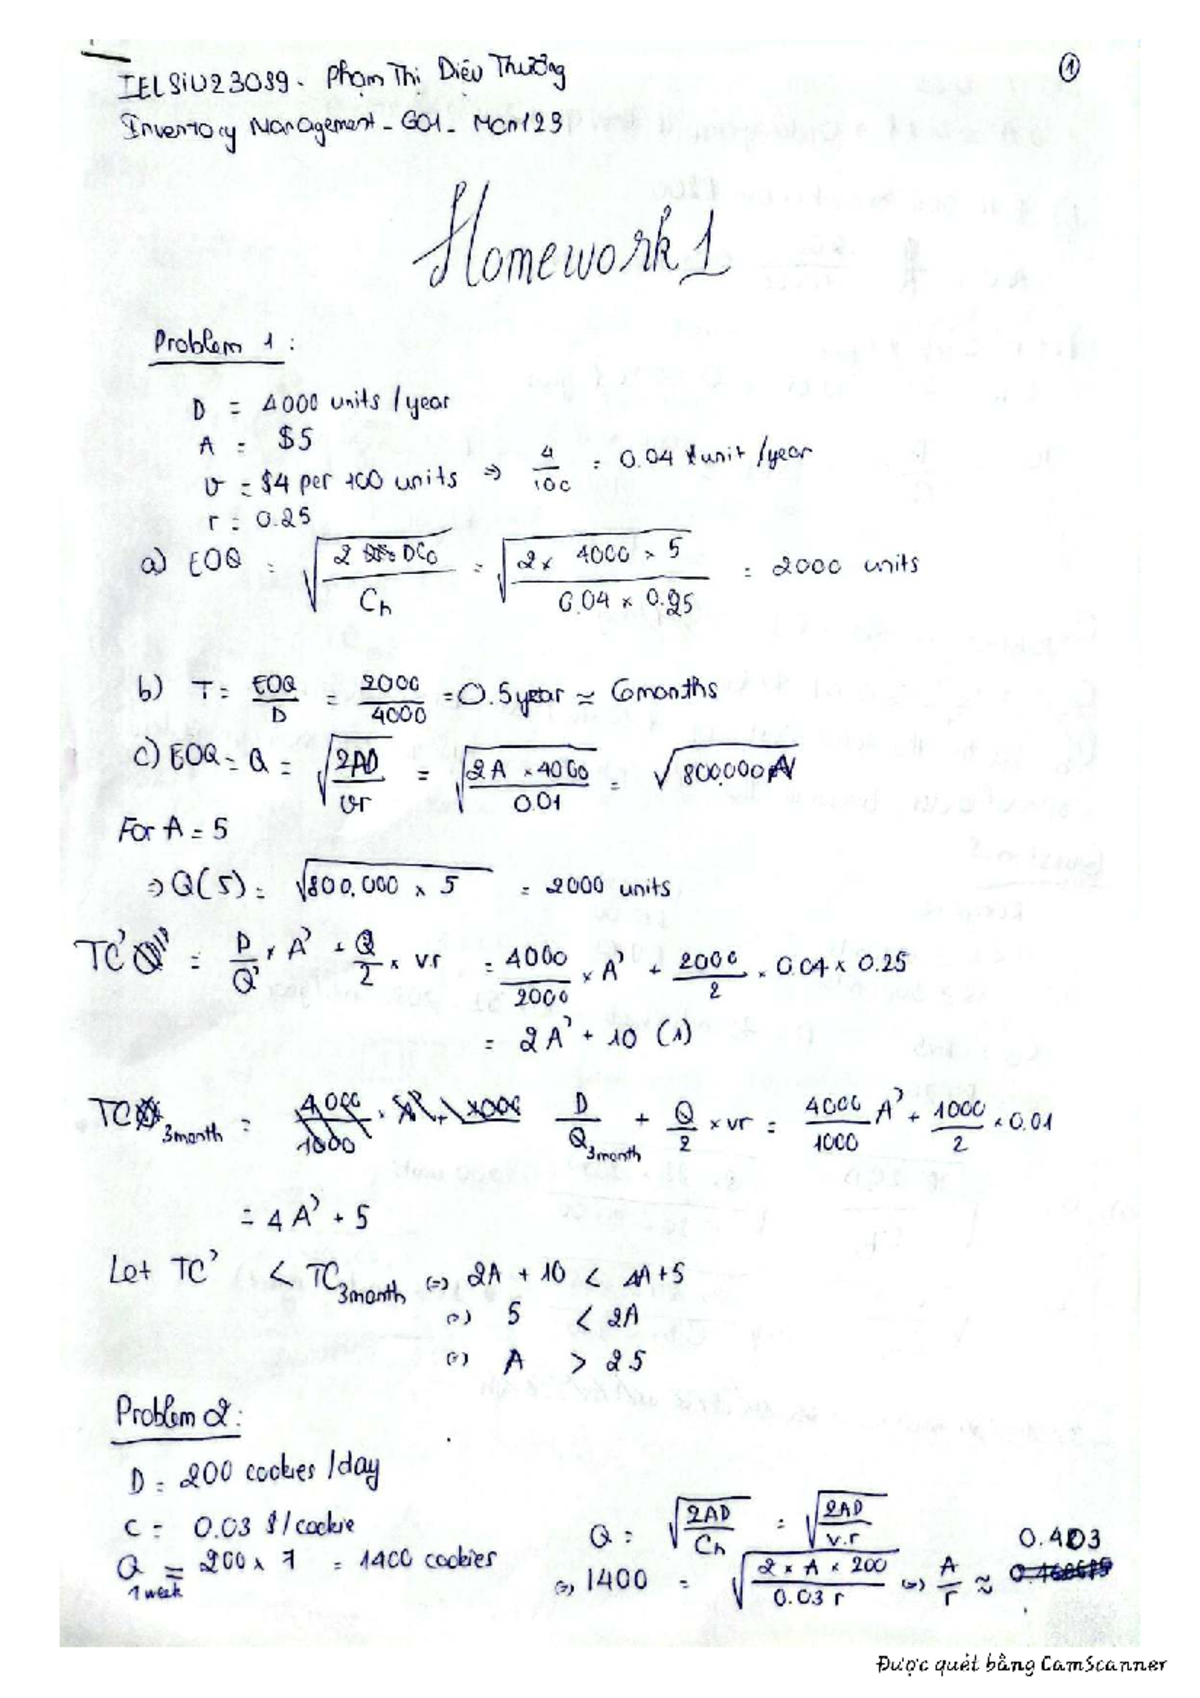 IELSIU23039 - Phạm Thị Diệu Thương
①
Inventory Management - G01 - Mon129
Homework 1
Problem 1 :
D = 4000 units / year
A = $5
v = $4 per 100 units ⇒ 4/100 = 0.04 $unit / year
r = 0.25
a) EOQ = √(2 DCo / Ch) = √(2 × 4000 × 5 / 0.04 × 0.25) = 2000 units
b) T = EOQ / D = 2000 / 4000 = 0.5 year ≈ 6 months
c) EOQ = Q = √(2AD / vr) = √(2A × 4000 / 0.01) = √800.000 A
For A = 5
⇒ Q(5) = √800.000 × 5 = 2000 units
TC' = D/Q' × A' + Q/2 × v.r = 4000/2000 × A' + 2000/2 × 0.04 × 0.25
= 2A' + 10 (1)
TC 3month = D / Q 3month + Q/2 × vr = 4000/1000 A' + 1000/2 × 0.01
= 4A' + 5
Let TC' < TC 3month (=) 2A + 10 < 4A + 5
(=) 5 < 2A
(=) A > 2.5
Problem 2 :
D = 200 cookies / day
C = 0.03 $ / cookie
Q 1 week = 200 × 7 = 1400 cookies
Q = √(2AD / Ch) = √(2AD / v.r)
(=) 1400 = √(2 × A × 200 / 0.03 r) (=) A/r ≈
Được quét bằng CamScanner